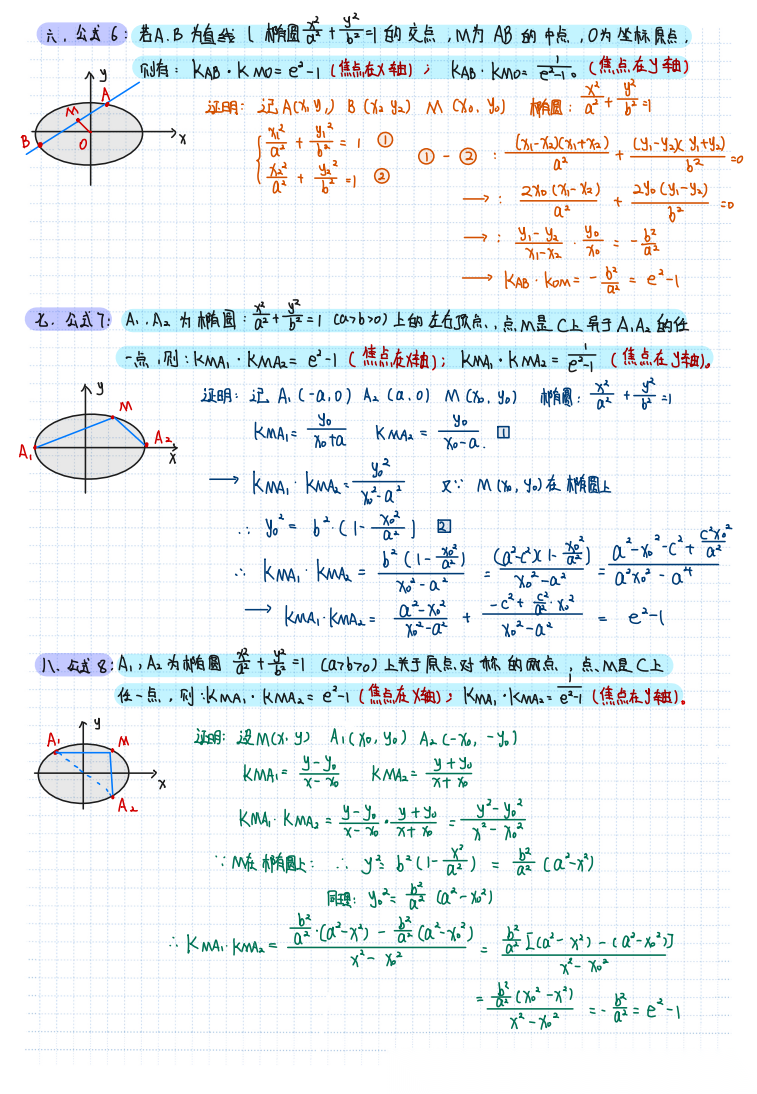 六、公式6: 若A.B 为直线 l 椭圆 x²/a² + y²/b² =1 的交点,M为 AB 的中点,O为坐标原点,
则有: KAB·KMO = e²-1 (焦点在x轴); KAB·KMO = 1/(e²-1)。(焦点在y轴)
y A M B O x
证明: 记 A(x₁ y₁) B (x₂ y₂) M (x₀, y₀) 椭圆: x²/a² + y²/b² =1
{ x₁²/a² + y₁²/b² = 1 ①
x₂²/a² + y₂²/b² =1 ②
① - ② : (x₁-x₂)(x₁+x₂)/a² + (y₁-y₂)(y₁+y₂)/b² =0
→ : 2x₀(x₁-x₂)/a² + 2y₀(y₁-y₂)/b² =0
→ : (y₁-y₂)/(x₁-x₂) · y₀/x₀ = -b²/a²
→ KAB·KOM = -b²/a² = e²-1
七. 公式7: A₁.,A₂ 为椭圆: x²/a² + y²/b² =1 (a>b>0) 上的左右顶点.,点M是C上异于A₁A₂的任
一点,则: KMA₁·KMA₂ = e²-1 (焦点在x轴); KMA₁·KMA₂ = 1/(e²-1) (焦点在y轴)。
y M A₁ A₂ x
证明: 记 A₁(-a,0) A₂(a,0) M(x₀,y₀) 椭圆: x²/a² + y²/b² =1
KMA₁ = y₀/(x₀+a) KMA₂ = y₀/(x₀-a). 1
→ KMA₁·KMA₂ = y₀²/(x₀²-a²) 又∵ M(x₀,y₀)在椭圆上
∴ y₀² = b²·(1-x₀²/a²) 2
∴ KMA₁·KMA₂ = b²(1-x₀²/a²)/(x₀²-a²) = (a²-c²)(1-x₀²/a²)/(x₀²-a²) = (a²-x₀²-c²+c²x₀²/a²)/(a²x₀²-a⁴)
→ KMA₁·KMA₂ = (a²-x₀²)/(x₀²-a²) + (-c²+c²/a²·x₀²)/(x₀²-a²) = e²-1
八.公式8: A₁,A₂为椭圆 x²/a² + y²/b² =1 (a>b>0)上关于原点对称的两点,点M是C上
任一点,则:KMA₁·KMA₂ = e²-1 (焦点在x轴); KMA₁·KMA₂ = 1/(e²-1) (焦点在y轴)。
y A₁ M A₂ x
证明: 设M(x,y) A₁(x₀,y₀) A₂(-x₀,-y₀)
KMA₁ = (y-y₀)/(x-x₀) KMA₂ = (y+y₀)/(x+x₀)
KMA₁·KMA₂ = (y-y₀)/(x-x₀)·(y+y₀)/(x+x₀) = (y²-y₀²)/(x²-x₀²)
∵M在椭圆上: ∴ y² = b²(1-x²/a²) = b²/a² (a²-x²)
同理: y₀² = b²/a² (a²-x₀²)
∴ KMA₁·KMA₂ = (b²/a²·(a²-x²) - b²/a²(a²-x₀²))/(x²-x₀²) = b²/a²[(a²-x²)-(a²-x₀²)]/(x²-x₀²)
= b²/a²(x₀²-x²)/(x²-x₀²) = -b²/a² = e²-1